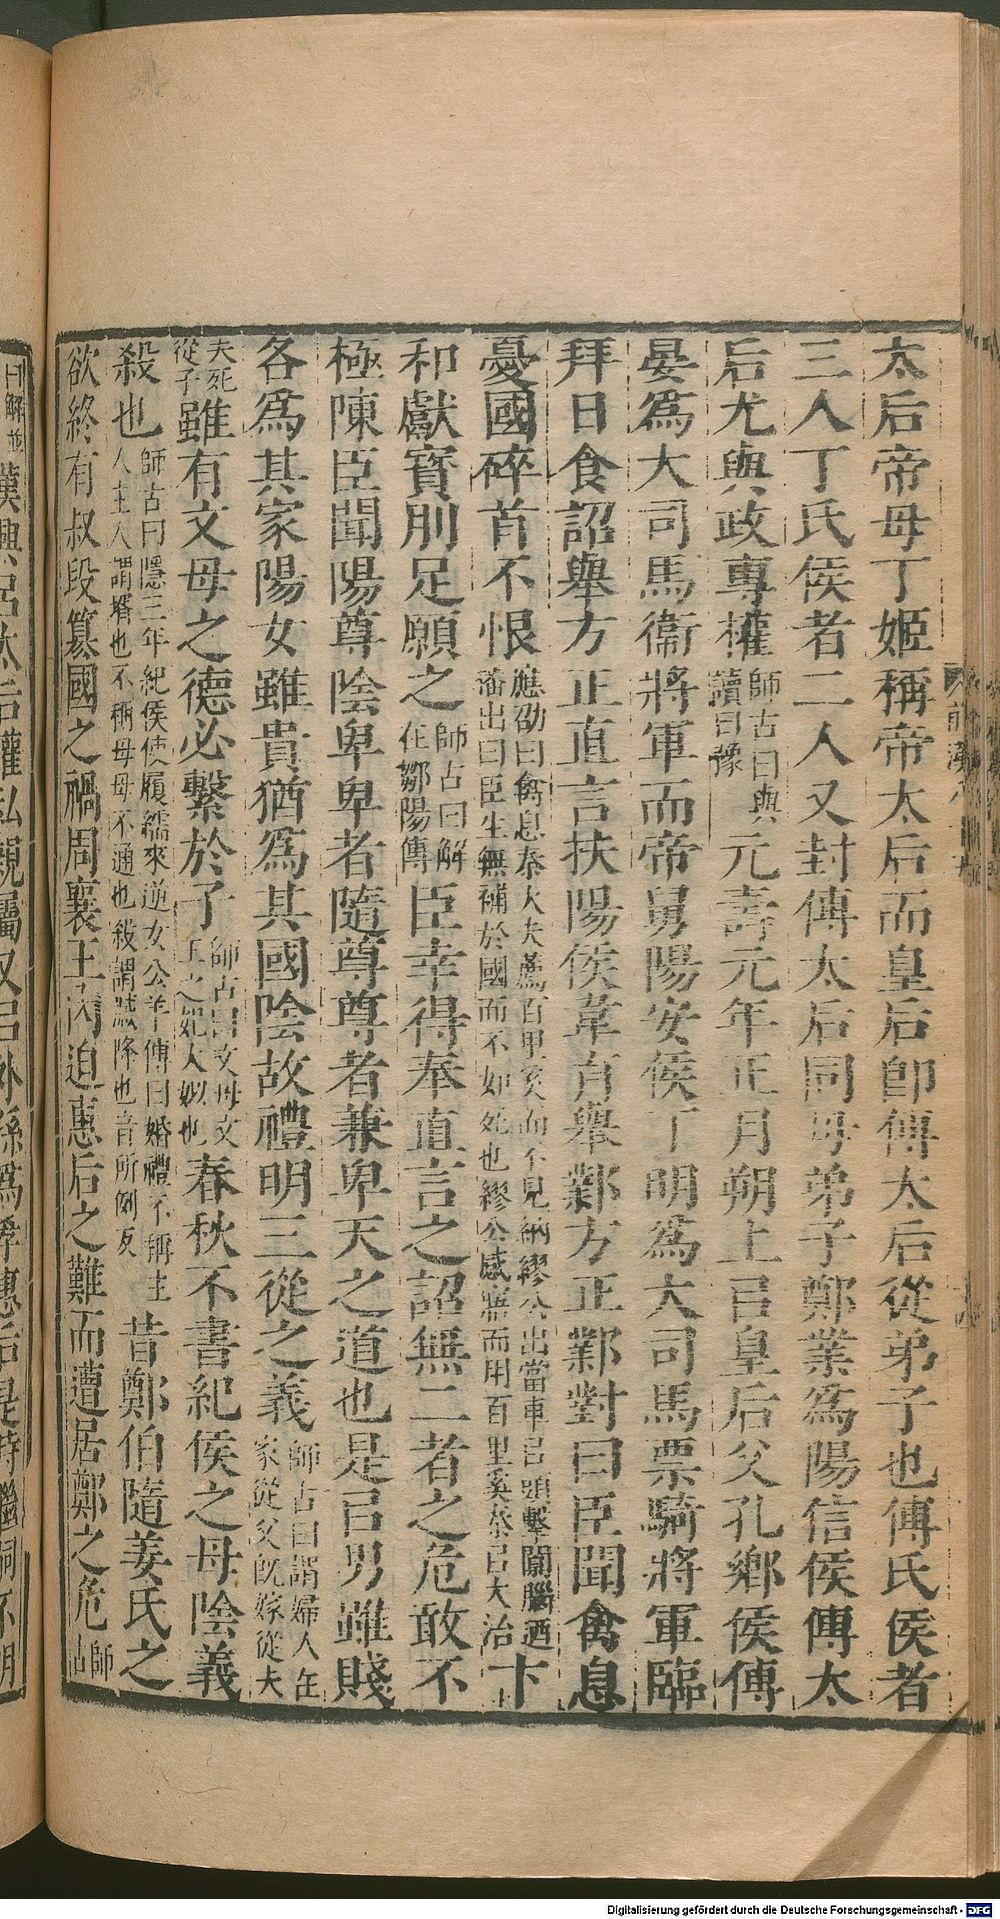 太后帝母丁姬稱帝太后而皇后卽傅太后從弟子也傅氏侯者
三人丁氏侯者二人又封傅太后同母弟子鄭業爲陽信侯傅太
后尤與政專權師古曰與讀曰豫元壽元年正月朔上㠯皇后父孔鄉侯傅
晏爲大司馬衞將軍而帝舅陽安侯丁明爲大司馬票騎將軍臨
拜日食詔舉方正直言扶陽侯韋育舉鄴方正鄴對曰臣聞禽息
憂國碎首不恨應劭曰禽息秦大夫薦百里奚而不見納繆公出當車㠯頭擊闑腦迺播出曰臣生無補於國而不如死也繆公感寤而用百里奚秦㠯大治卞
和獻寶刖足願之師古曰解在鄒陽傳臣幸得奉直言之詔無二者之危敢不
極陳臣聞陽尊陰卑卑者隨尊尊者兼卑天之道也是㠯男雖賤
各爲其家陽女雖貴猶爲其國陰故禮明三從之義師古曰謂婦人在家從父旣嫁從夫
夫死從子雖有文母之德必繫於子師古曰文母文王之妃大姒也春秋不書紀侯之母陰義
殺也師古曰隱二年紀侯使履繻來逆女公羊傳曰婚禮不稱主人主人謂壻也不稱母母不通也殺謂減降也音所例反昔鄭伯隨姜氏之
欲終有叔段簒國之禍周襄王內迫惠后之難而遭居鄭之危師古
曰解並漢興呂太后權私親屬又㠯外孫爲孝惠后是時繼嗣不明
Digitalisierung gefördert durch die Deutsche Forschungsgemeinschaft - DFG